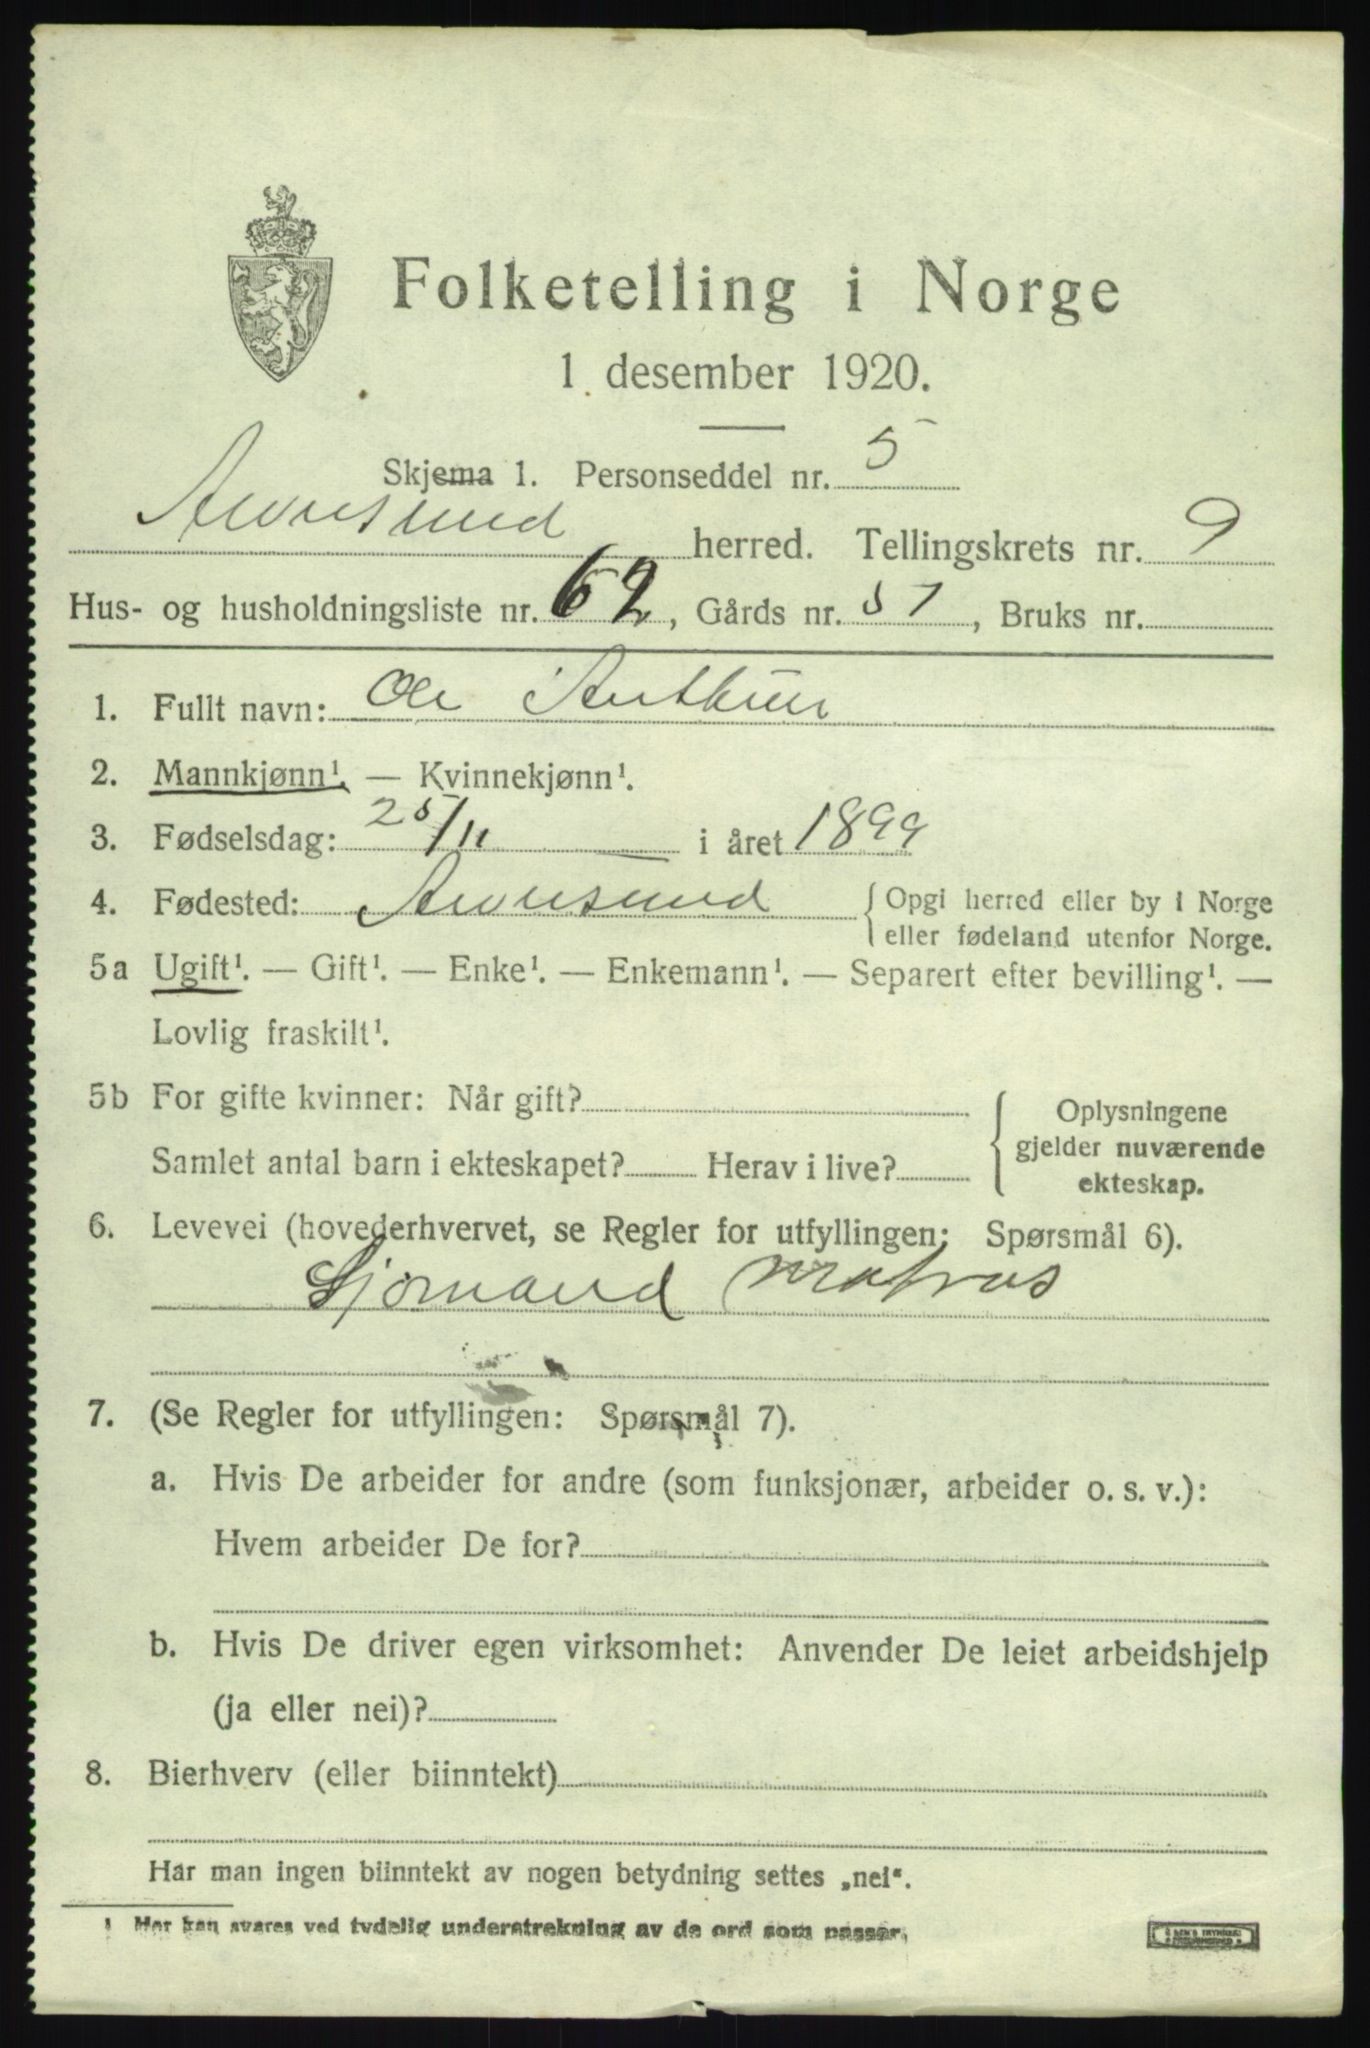 Folketelling i Norge
1 desember 1920.
Skjema 1. Personseddel nr. 5
Averøysund herred. Tellingskrets nr. 9
Hus- og husholdningsliste nr. 62, Gårds nr. 57, Bruks nr.
1. Fullt navn: Ole Arthur
2. Mannkjønn¹. — Kvinnekjønn¹.
3. Fødselsdag: 25/11 i året 1899
4. Fødested: { Opgi herred eller by i Norge
eller fødeland utenfor Norge.
5a Ugift¹. — Gift¹. — Enke¹. — Enkemann¹. — Separert efter bevilling¹. —
Lovlig fraskilt¹.
5b For gifte kvinner: Når gift? { Oplysningene
gjelder nuværende
Samlet antal barn i ekteskapet? Herav i live?
ekteskap.
6. Levevei (hovederhvervet, se Regler for utfyllingen: Spørsmål 6).
Sjømand matros
7. (Se Regler for utfyllingen: Spørsmål 7).
a. Hvis De arbeider for andre (som funksjonær, arbeider o. s. v.):
Hvem arbeider De for?
b. Hvis De driver egen virksomhet: Anvender De leiet arbeidshjelp
(ja eller nei)?
8. Bierhverv (eller biinntekt)
Har man ingen biinntekt av nogen betydning settes „nei“.
¹ Her kan svares ved tydelig understrekning av de ord som passer.